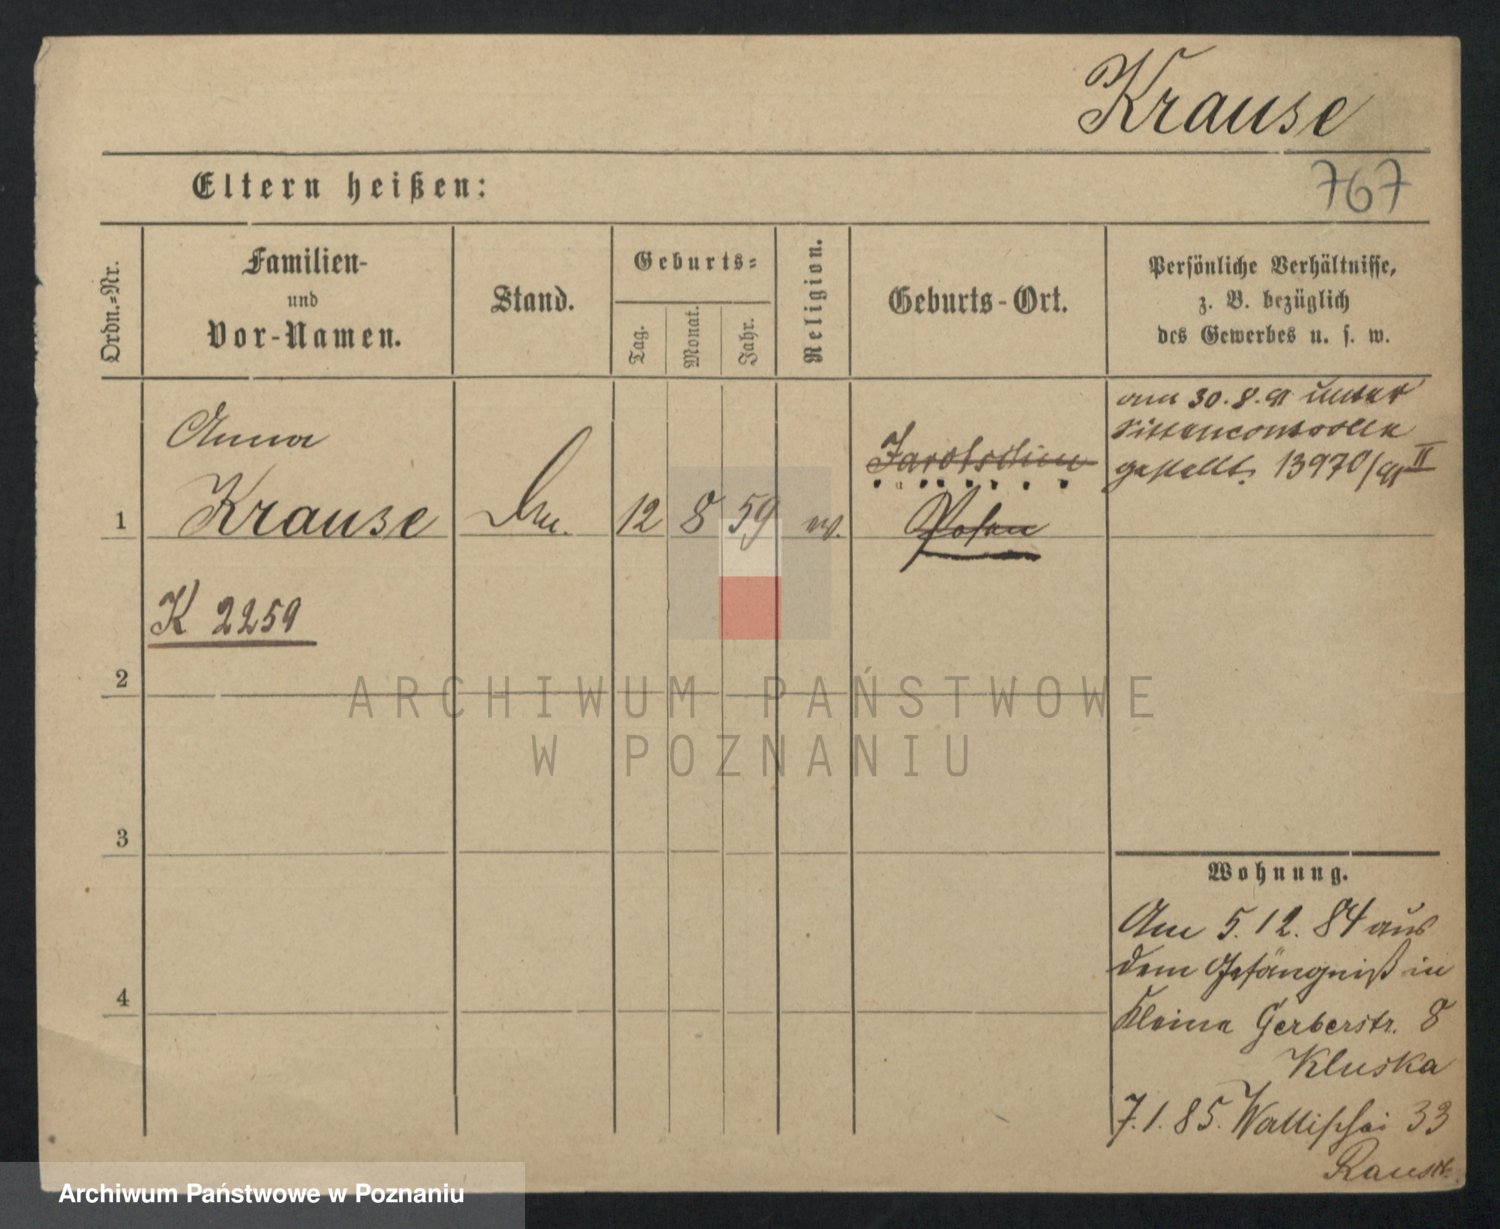 Krause
Eltern heißen:
767
Ordn.-Nr.
Familien-
und
Vor-Namen.
Stand.
Geburts-
Tag.
Monat.
Jahr.
Religion.
Geburts-Ort.
Persönliche Verhältnisse,
z. B. bezüglich
des Gewerbes u. s. w.
Anna
Krause
1
12 8 59
Jarotschin
Posen
am 30.8.91 unter
Sittencontrolle
gestellt. 13970/91 II
K 2259
2
3
4
Wohnung.
Am 5.12.84 aus
dem Gefängniß in
Kleine Gerberstr. 8
Kluska
7.1.85. Wallischei 33
ARCHIWUM PAŃSTWOWE
W POZNANIU
Archiwum Państwowe w Poznaniu